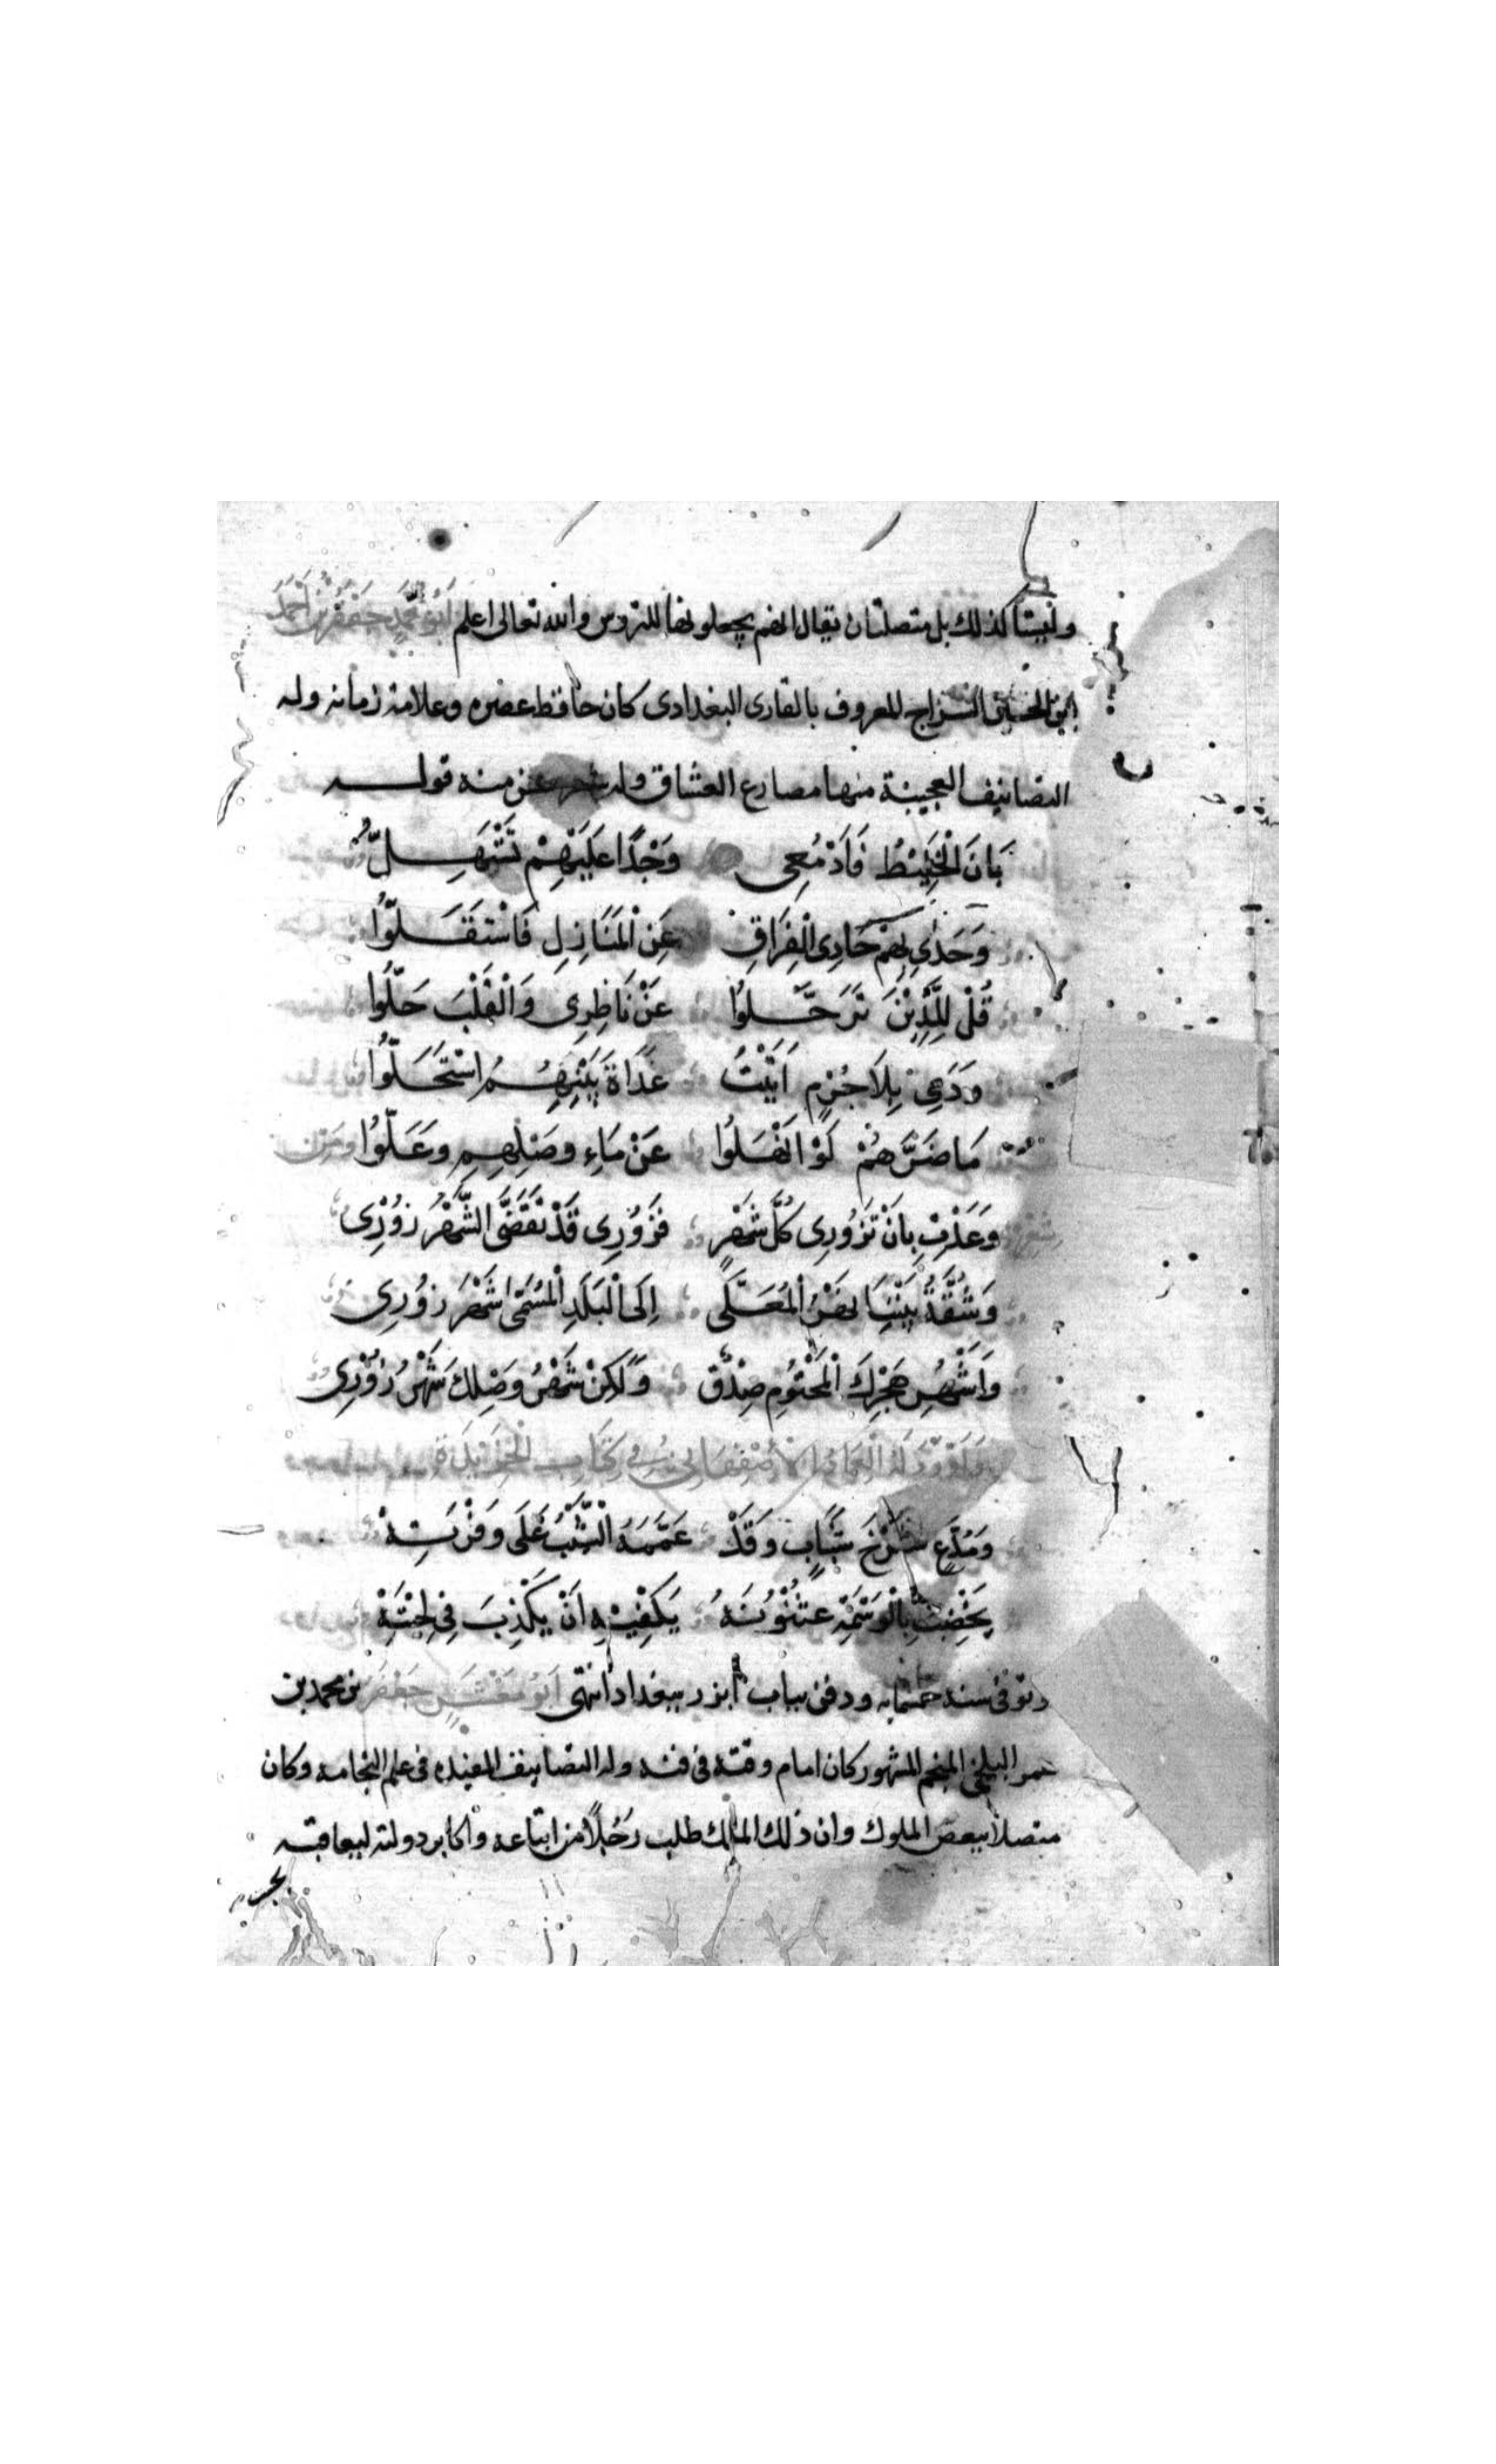 وليستا كذلك بل متصلتان يقال انهم يجعلونها للتروس والله تعالى اعلم أَبُو مُحَمَّدٍ جَعْفَرُ بْنُ أَحْمَدَ
ابن الحسين السراج المعروف بالقارى البغدادى كان حافظ عصره وعلامة زمانه وله
التصانيف العجيبة منها مصارع العشاق وله شعر حسن منه قوله
بَانَ الْخَلِيْطُ فَاَدْمُعِى وَجْدًا عَلَيْهِمْ تَسْتَهِلُّ
وَحَدٰى بِهِمْ حَادِى الْفِرَاقِ عَنِ الْمَنَازِلِ فَاسْتَقَلُّوا
قُلْ لِلَّذِيْنَ تَرَحَّلُوا عَنْ نَاظِرِى وَالْقَلْبَ حَلُّوا
وَدَمِى بِلَا جُرْمٍ اَتَيْتُ غَدَاةَ بَيْنِهِمُ اسْتَحَلُّوا
مَا ضَرَّهُمْ لَوْ انْهَلُوا عَنْ مَاءِ وصَلِهِمِ وَعَلُّوا ومن
شعره وَعَدْتِ بِانْ تَزُوْرِى كُلَّ شَهْرٍ فَزُوْرِى قَدْ تَقَضَّى الشَّهْرُ زُوْرِى
وَشُقَّةُ بَيْنِنَا نَهْرُ الْمُعَلَّى اِلَى الْبَلَدِ الْمُسَمَّى شَهْرَ زوُرِى
وَاَشْهُرِ هَجْرِكَ الْمَحْتُوْمِ صِدْق وَلَكِنْ شَهْرُ وصْلِكَ شَهْرُ زُوْرِى
وَاَوْرَدَ لَهُ الْعِمَادُ الْأَصْفَهَانِىُّ فِى كِتَابِ الْخَرِيْدَةِ
وَمُدَّعٍ شَرْخَ شَبَابٍ وَقَدْ عَمَّمَهُ الشَّيْبُ عَلَى وَفْرَتِهْ
يَخْضِبُ بِالْوَشْمَةِ عُثْنُوْنَهُ يَكْفِيْهِ اَنْ يَكْذِبَ فِى لِحْيَتِهْ
وتوفى سنة خمسمايه ودفن بباب ابزر ببغداد انتهى أَبُو مَعْشَرٍ جَعْفَرُ بن محمد بن
عمر البلخى المنجم المشهور كان امام وقته فى فنه وله التصانيف المفيده فى علم النجامه وكان
متصلاً ببعض الملوك وان ذلك الملك طلب رَجُلاً من اتباعه واكابر دولته ليعاقبه